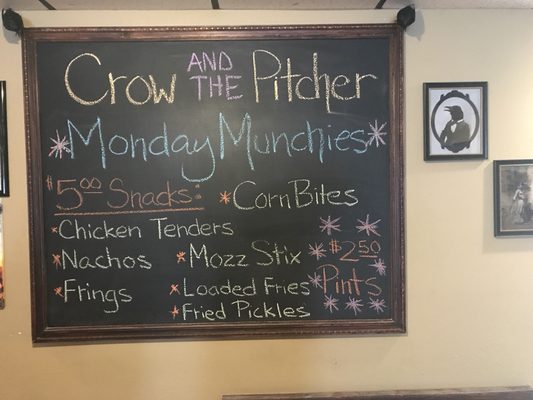 Crow AND THE Pitcher
* Monday Munchies *
$5.00 Snacks:
* Corn Bites
* Chicken Tenders
* Nachos
* Mozz Stix
* Frings
* Loaded Fries
* Fried Pickles
$2.50
Pints